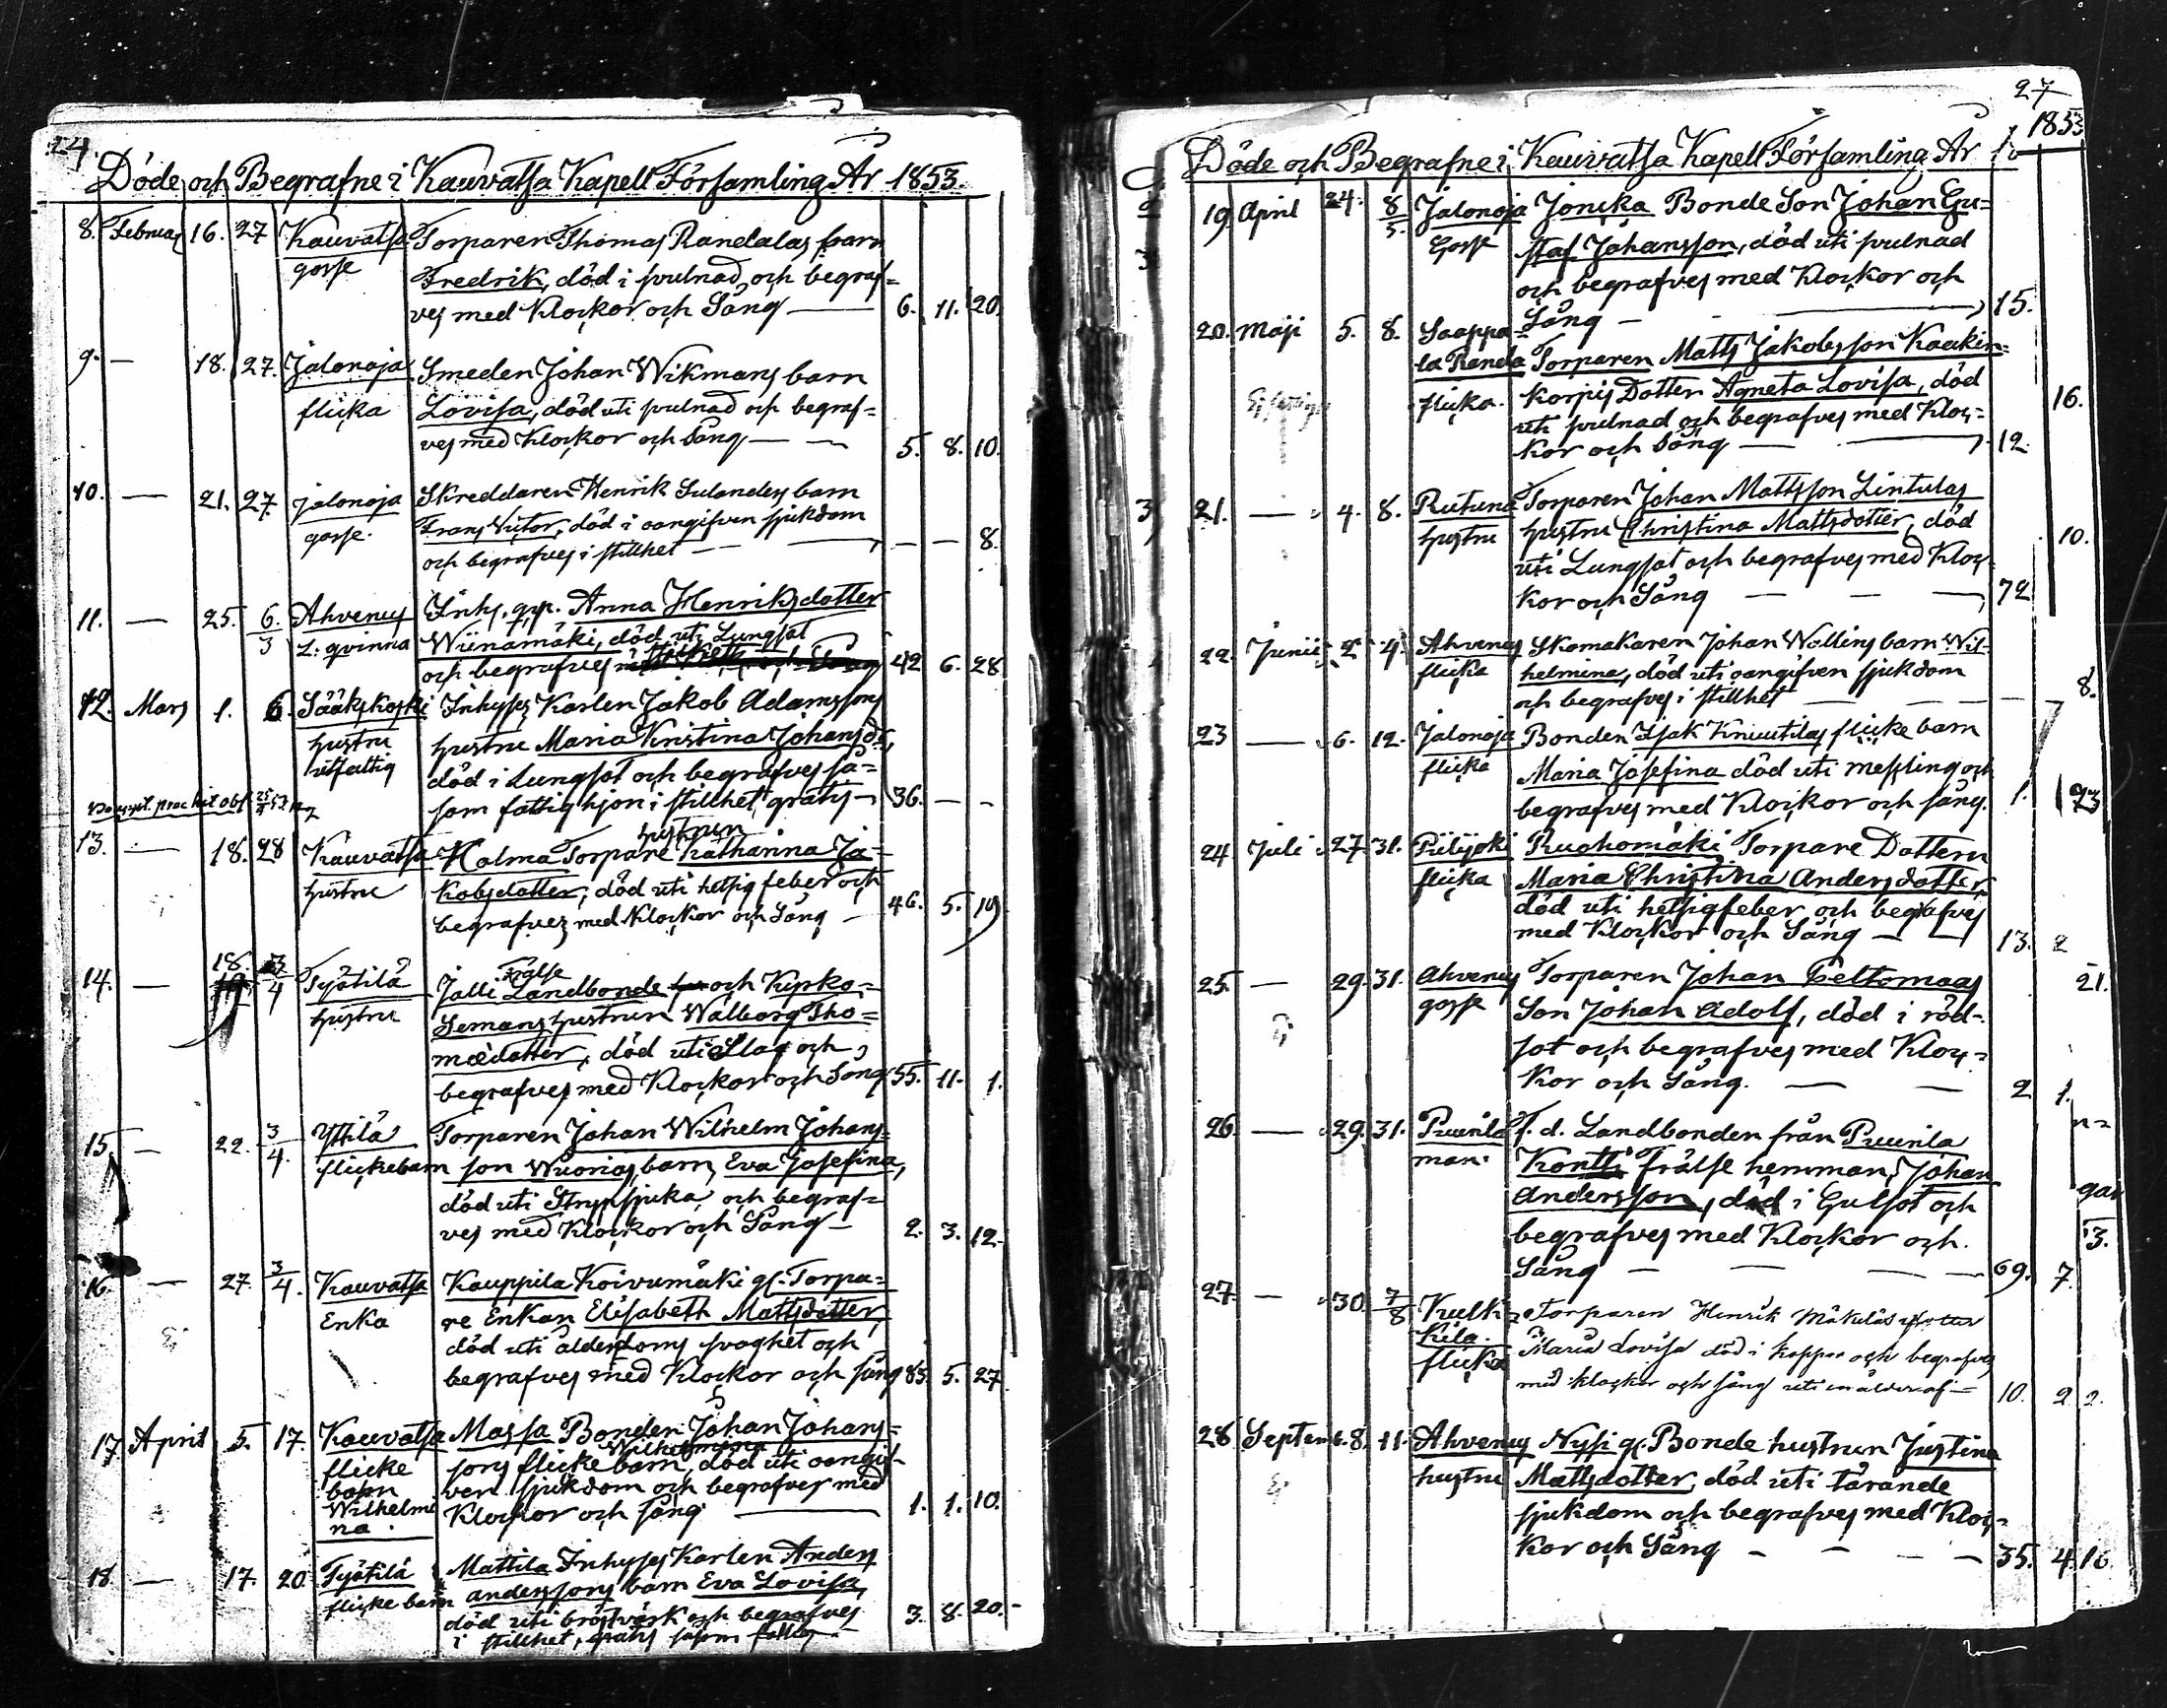 24.
Döde och Begrafne i Kauvatsa Kapell Församling År 1853.
8. Februar 16. 27 Kauvatsa Torparen Thomas Randalas barn
gosse Fredrik, död i pulnad, och begraf=
ves med Klockor och Sång — 6. 11. 20.
9. — 18. 27. Jalonoja Smeden Johan Wikmans barn
flicka Lovisa, död uti pulnad och begraf=
ves med Klockor och Sång — — 5. 8. 10.
10. — 21. 27. Jalonoja Skreddaren Henrik Sulanders barn
gosse. Frans Victor, död i oangifven sjukdom
och begrafves i stillhet — — — — 8.
11. — 25. 6. Ahvenus Inhs. qvp. Anna Henriksdotter
3 L: qvinna Wiinamäki, död uti Lungsot
och begrafves i stillhet 42 6. 28
12. Mars 1. 6. Sääkskoski Inhyses Karlen Jakob Adamssons
hustru hustru Maria Kristina Johansdr,
utfattig död i Lungsot och begrafves så=
som fattighjon i stillhet, gratis — 36. — —
13. — 18. 28 Kauvatsa Kalma Torpare hustrun Katharina Ja=
hustru kobsdotter, död uti hetsig feber och
begrafves med Klockor och Sång — 46. 5. 19
14. — 18. 3/4 Työtilä Jalli Frälse Landbonde och Kipko=
hustru Semans hustrun Walborg Tho=
maedotter, död uti Slag och
begrafves med Klockor och Sång 55. 11. 1.
15. — 22. 3/4. Yttilä Torparen Johan Wilhelm Johans=
flickebarn son Wuorios barn, Eva Josefina,
död uti Strypsjuka, och begraf=
ves med Klockor och Sång — 2. 3. 12.
16. — 27. 3/4. Kauvatsa Kauppila Koivumäki gl. Torpa=
Enka re Enkan Elisabeth Mattsdotter,
död uti ålderdoms svaghet och
begrafves med Klockor och sång 83. 5. 27
17. April 5. 17. Kauvatsa Massa Bonden Johan Johans=
flicke sons flicke barn, Wilhelmina död uti oangif=
barn ven sjukdom och begrafves med
Wilhelmi Klockor och sång — 1. 1. 10.
na.
18. — 17. 20 Työtilä Mattila Inhyses Karlen Anders
flicke barn anderssons barn Eva Lovisa,
död uti bröstvärk och begrafves 3. 8. 20.
i stillhet, gratis såsom fattig.
27
Döde och Begrafne i Kauvatsa Kapell Församling År 1853
19. April 24. 8/5. Jalonoja Joncka Bonde Son Johan Gu=
Gosse staf Johansson, död uti pulnad
och begrafves med Klockor och
Sång — — 15.
20. Maji 5. 8. Saappa=
la Randa Torparen Matts Jakobsson Kaukin=
flicka. korpis Dotter Agneta Lovisa, död 16.
uti pulnad och begrafves med Kloc=
kor och Sång — — 12.
21. — 4. 8. Rutuna Torparen Johan Mattsson Lintulas
hustru hustru Christina Mattsdotter, död 10.
uti Lungsot och begrafves med Kloc=
kor och Sång — — — 72
22. Junii 2 4. Ahvenus Skomakaren Johan Wallins barn Wil=
flicka helmina, död uti oangifven sjukdom
och begrafves i stillhet — — — 8.
23 — 6. 12. Jalonoja Bonden Isak Knuutilas flicke barn
flicka Maria Josefina död uti messling och
begrafves med Klockor och sång. 1. 1 23
24 Juli 27. 31. Piilijoki Ruohomäki Torpare Dottern
flicka Maria Christina Andersdotter,
död uti hetsigfeber och begrafves
med Klockor och Sång — — 13. 2
25. — 29. 31. Ahvenus Torparen Johan Peltomaas 21.
gosse Son Johan Adolf, död i röd=
sot och begrafves med Kloc=
kor och Sång. — — 2 1.
26. — 29. 31. Puurila f. d. Landbonden från Puurila
man. Kontti Frälse hemman, Johan
Andersson, död i Gulsot och
begrafves med Klockor och 13.
Sång — — — 69. 7.
27. — 30. 7/8 Kulki= Torparen Henrik Mäkiläs dotter
kila. Maria Lovisa död i koppor och begrafves
flicka med klockor och sång uti en ålder af — 10. 2 2.
28 Septemb. 8. 11. Ahvenus Nyssi gl. Bonde hustrun Justina
hustru Mattsdotter, död uti tärande
sjukdom och begrafves med Kloc=
kor och Sång — — — — 35. 4. 16.